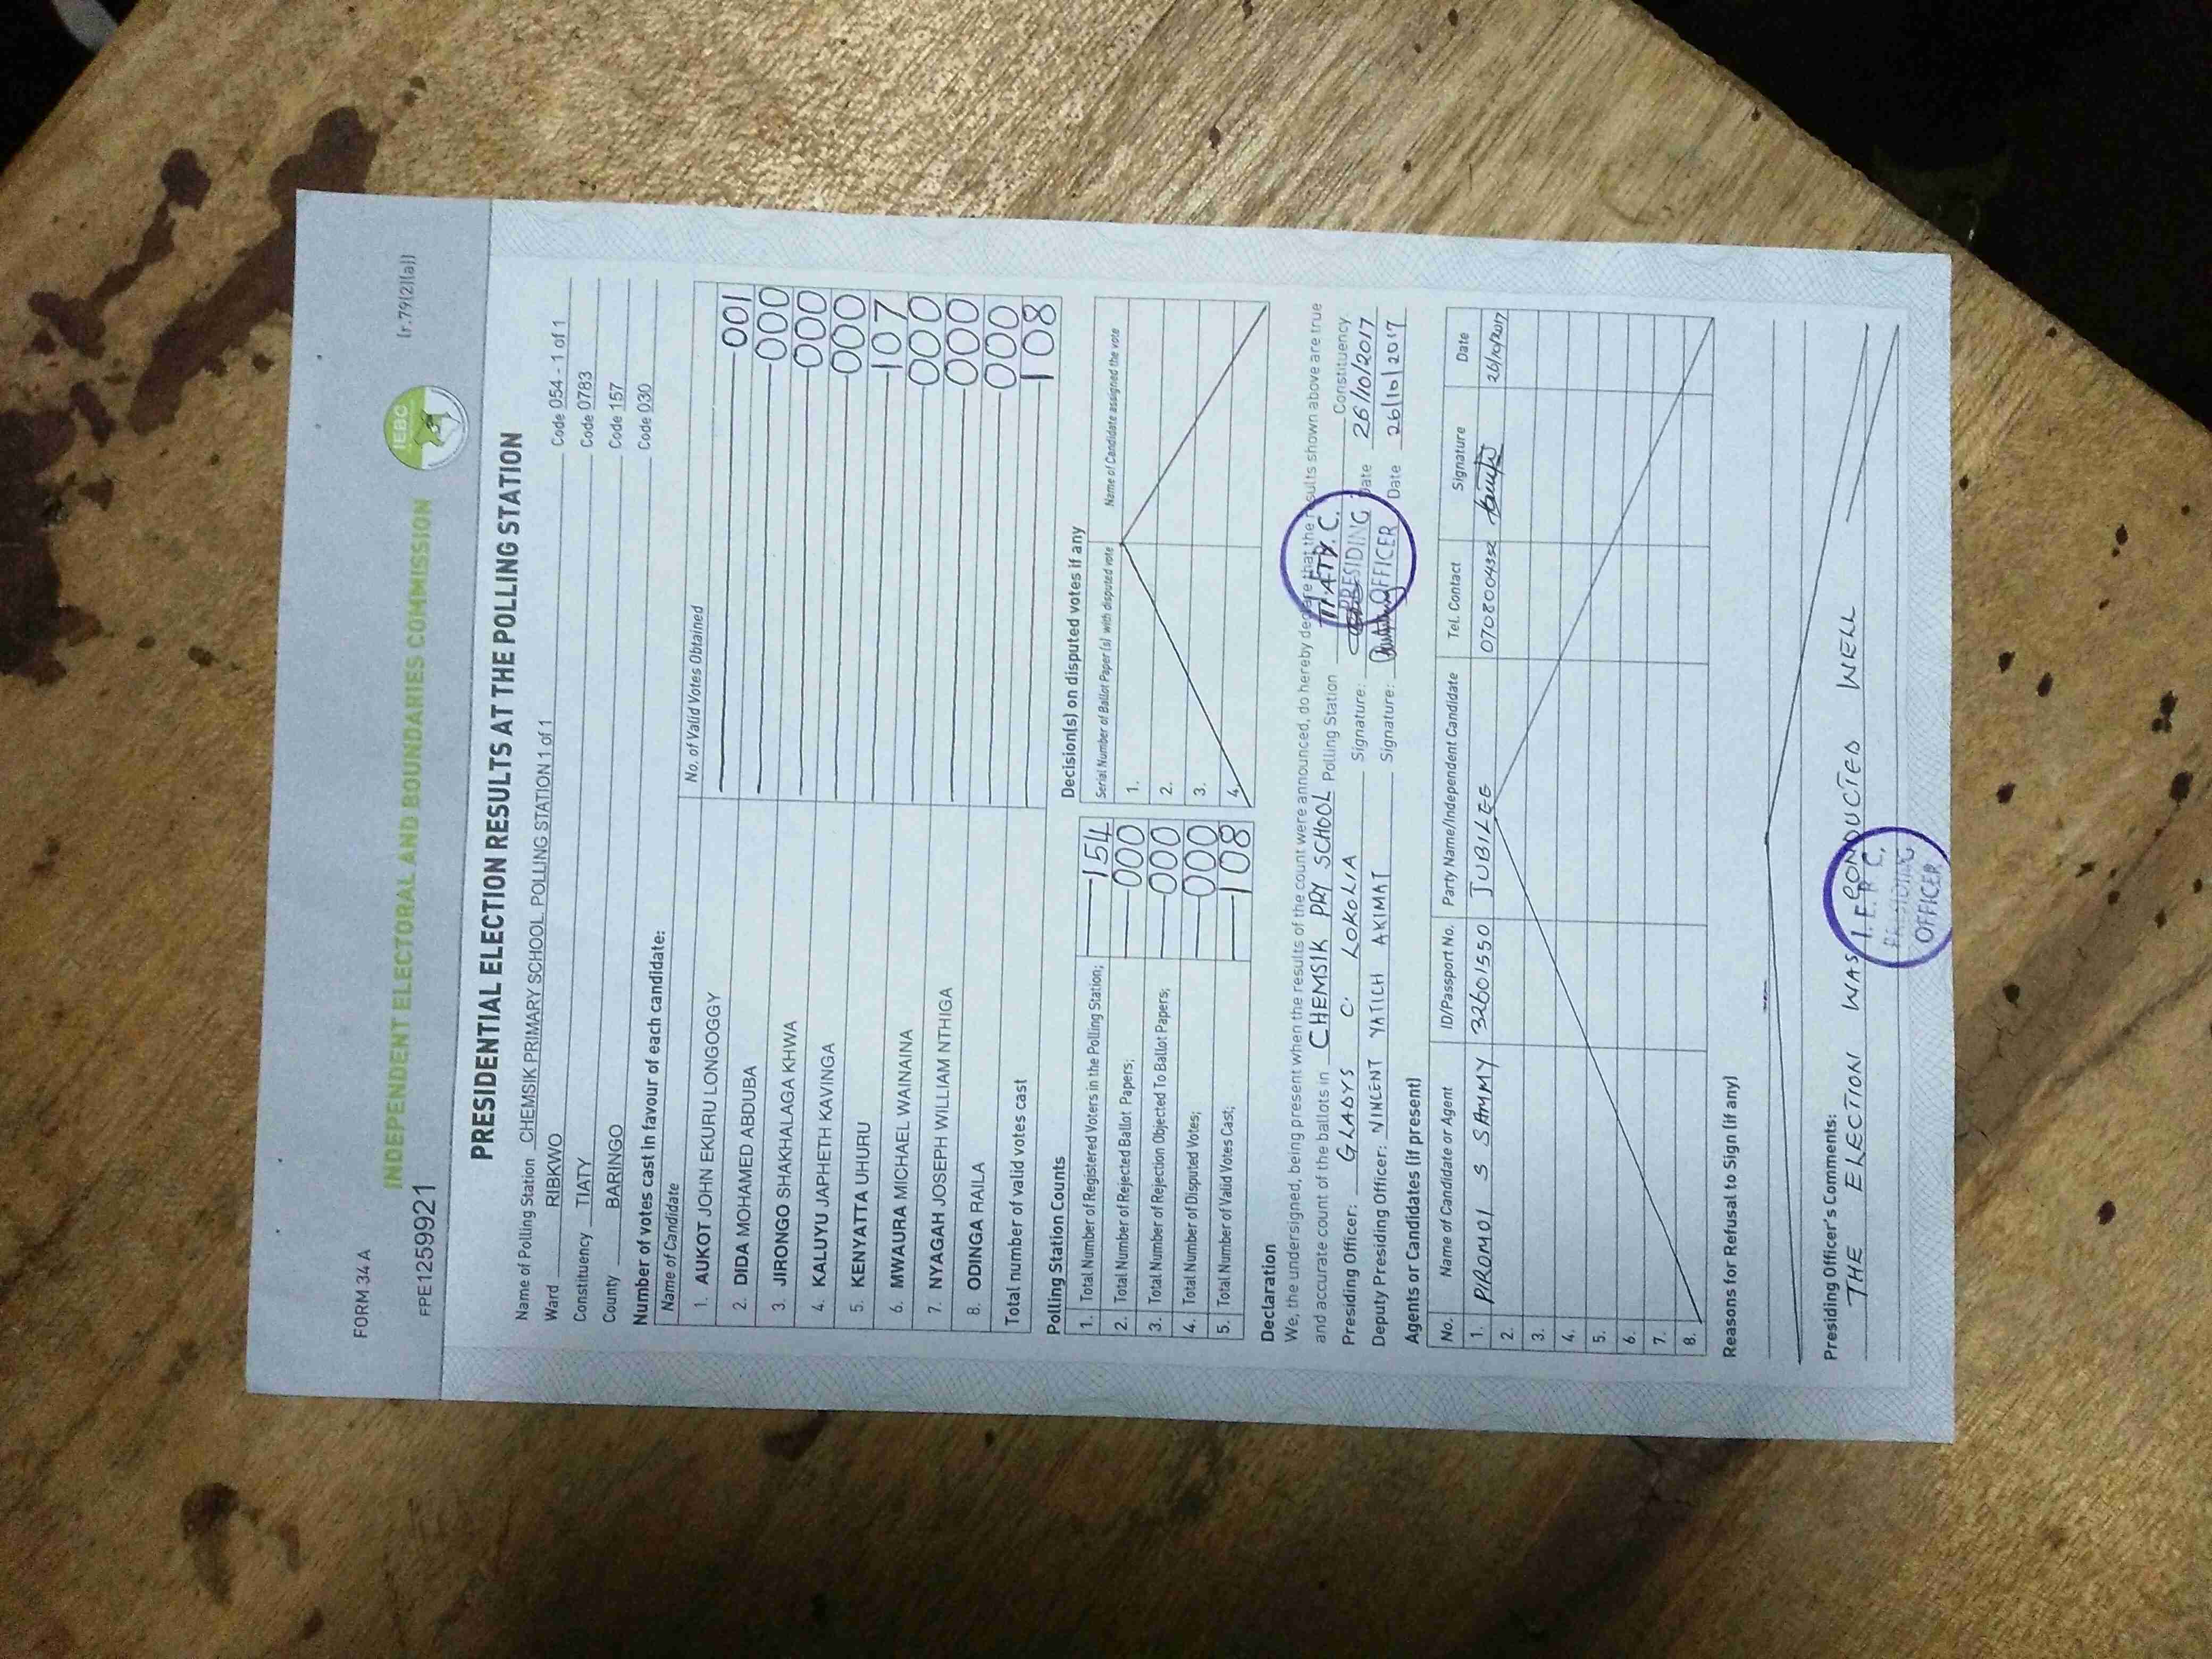 FORM 34 A
(r.79(2)(a))
INDEPENDENT ELECTORAL AND BOUNDARIES COMMISSION
IEBC
FPE1259921
PRESIDENTIAL ELECTION RESULTS AT THE POLLING STATION
Name of Polling Station CHEMSIK PRIMARY SCHOOL POLLING STATION 1 of 1 Code 054 - 1 of 1
Ward RIBKWO Code 0783
Constituency TIATY Code 157
County BARINGO Code 030
Number of votes cast in favour of each candidate:
Name of Candidate No. of Valid Votes Obtained
1. AUKOT JOHN EKURU LONGOGGY 001
2. DIDA MOHAMED ABDUBA 000
3. JIRONGO SHAKHALAGA KHWA 000
4. KALUYU JAPHETH KAVINGA 000
5. KENYATTA UHURU 107
6. MWAURA MICHAEL WAINAINA 000
7. NYAGAH JOSEPH WILLIAM NTHIGA 000
8. ODINGA RAILA 000
Total number of valid votes cast 108
Polling Station Counts
1. Total Number of Registered Voters in the Polling Station; 154
2. Total Number of Rejected Ballot Papers; 000
3. Total Number of Rejection Objected To Ballot Papers; 000
4. Total Number of Disputed Votes; 000
5. Total Number of Valid Votes Cast; 108
Decision(s) on disputed votes if any
Serial Number of Ballot Paper(s) with disputed vote Name of Candidate assigned the vote
1.
2.
3.
4.
Declaration
We, the undersigned, being present when the results of the count were announced, do hereby declare that the results shown above are true
and accurate count of the ballots in CHEMSIK PRY SCHOOL Polling Station TIATY Constituency.
Presiding Officer: GLADYS C. LOKOLIA Signature: Date 26/10/2017
Deputy Presiding Officer: NINCENT YATICH AKIMAT Signature: Date 26/10/2017
PRESIDING
OFFICER
Agents or Candidates (if present)
No. Name of Candidate or Agent ID/Passport No. Party Name/Independent Candidate Tel. Contact Signature Date
1. PIROMOI S SAMMY 32601550 JUBILEE 0708004352 26/10/2017
2.
3.
4.
5.
6.
7.
8.
Reasons for Refusal to Sign (if any)
Presiding Officer's Comments:
THE ELECTION WAS CONDUCTED WELL
I.E.B.C.
PRESIDING
OFFICER